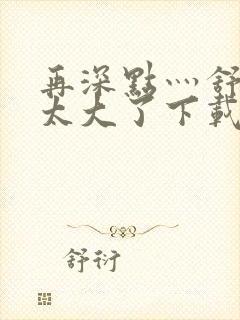 再深點灬舒
太大了下載
舒衍